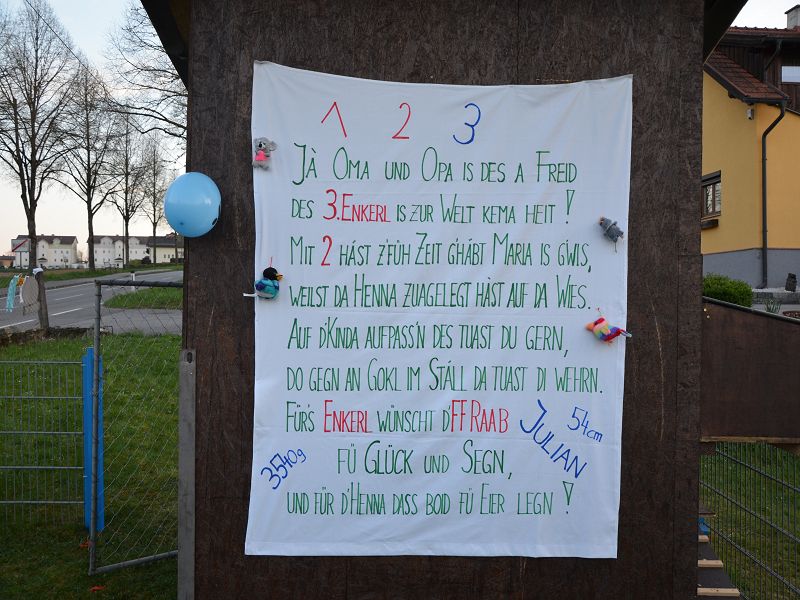 1 2 3
JÀ OMA UND OPA IS DES A FREID
DES 3.ENKERL IS ZUR WELT KEMA HEIT !
MIT 2 HÁST Z'FÜH ZEIT G'HÀBT MARIA IS G'WIS,
WEILST DA HENNA ZUAGELEGT HÀST AUF DA WIES.
AUF D'KINDA AUFPASS'N DES TUAST DU GERN,
DO GEGN AN GOKL IM STÁLL DA TUAST DI WEHRN.
FÜR'S ENKERL WÜNSCHT D'FF RAAB
JULIAN
54cm
3540g
FÜ GLÜCK UND SEGN,
UND FÜR D'HENNA DASS BOID FÜ EIER LEGN !